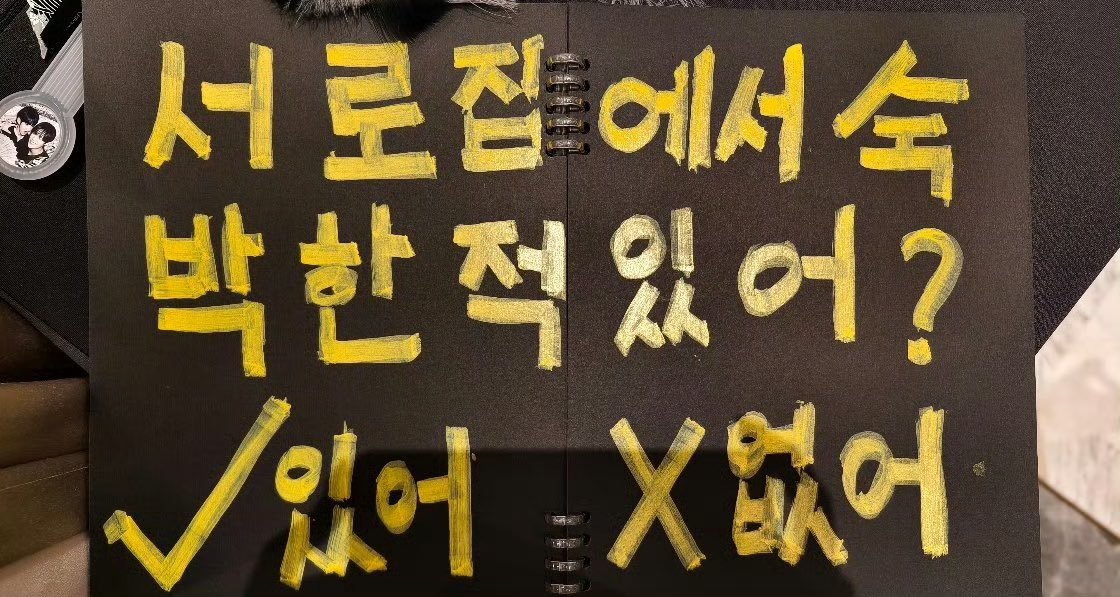 서로집에서숙
박한적있어?
✓있어 X없어